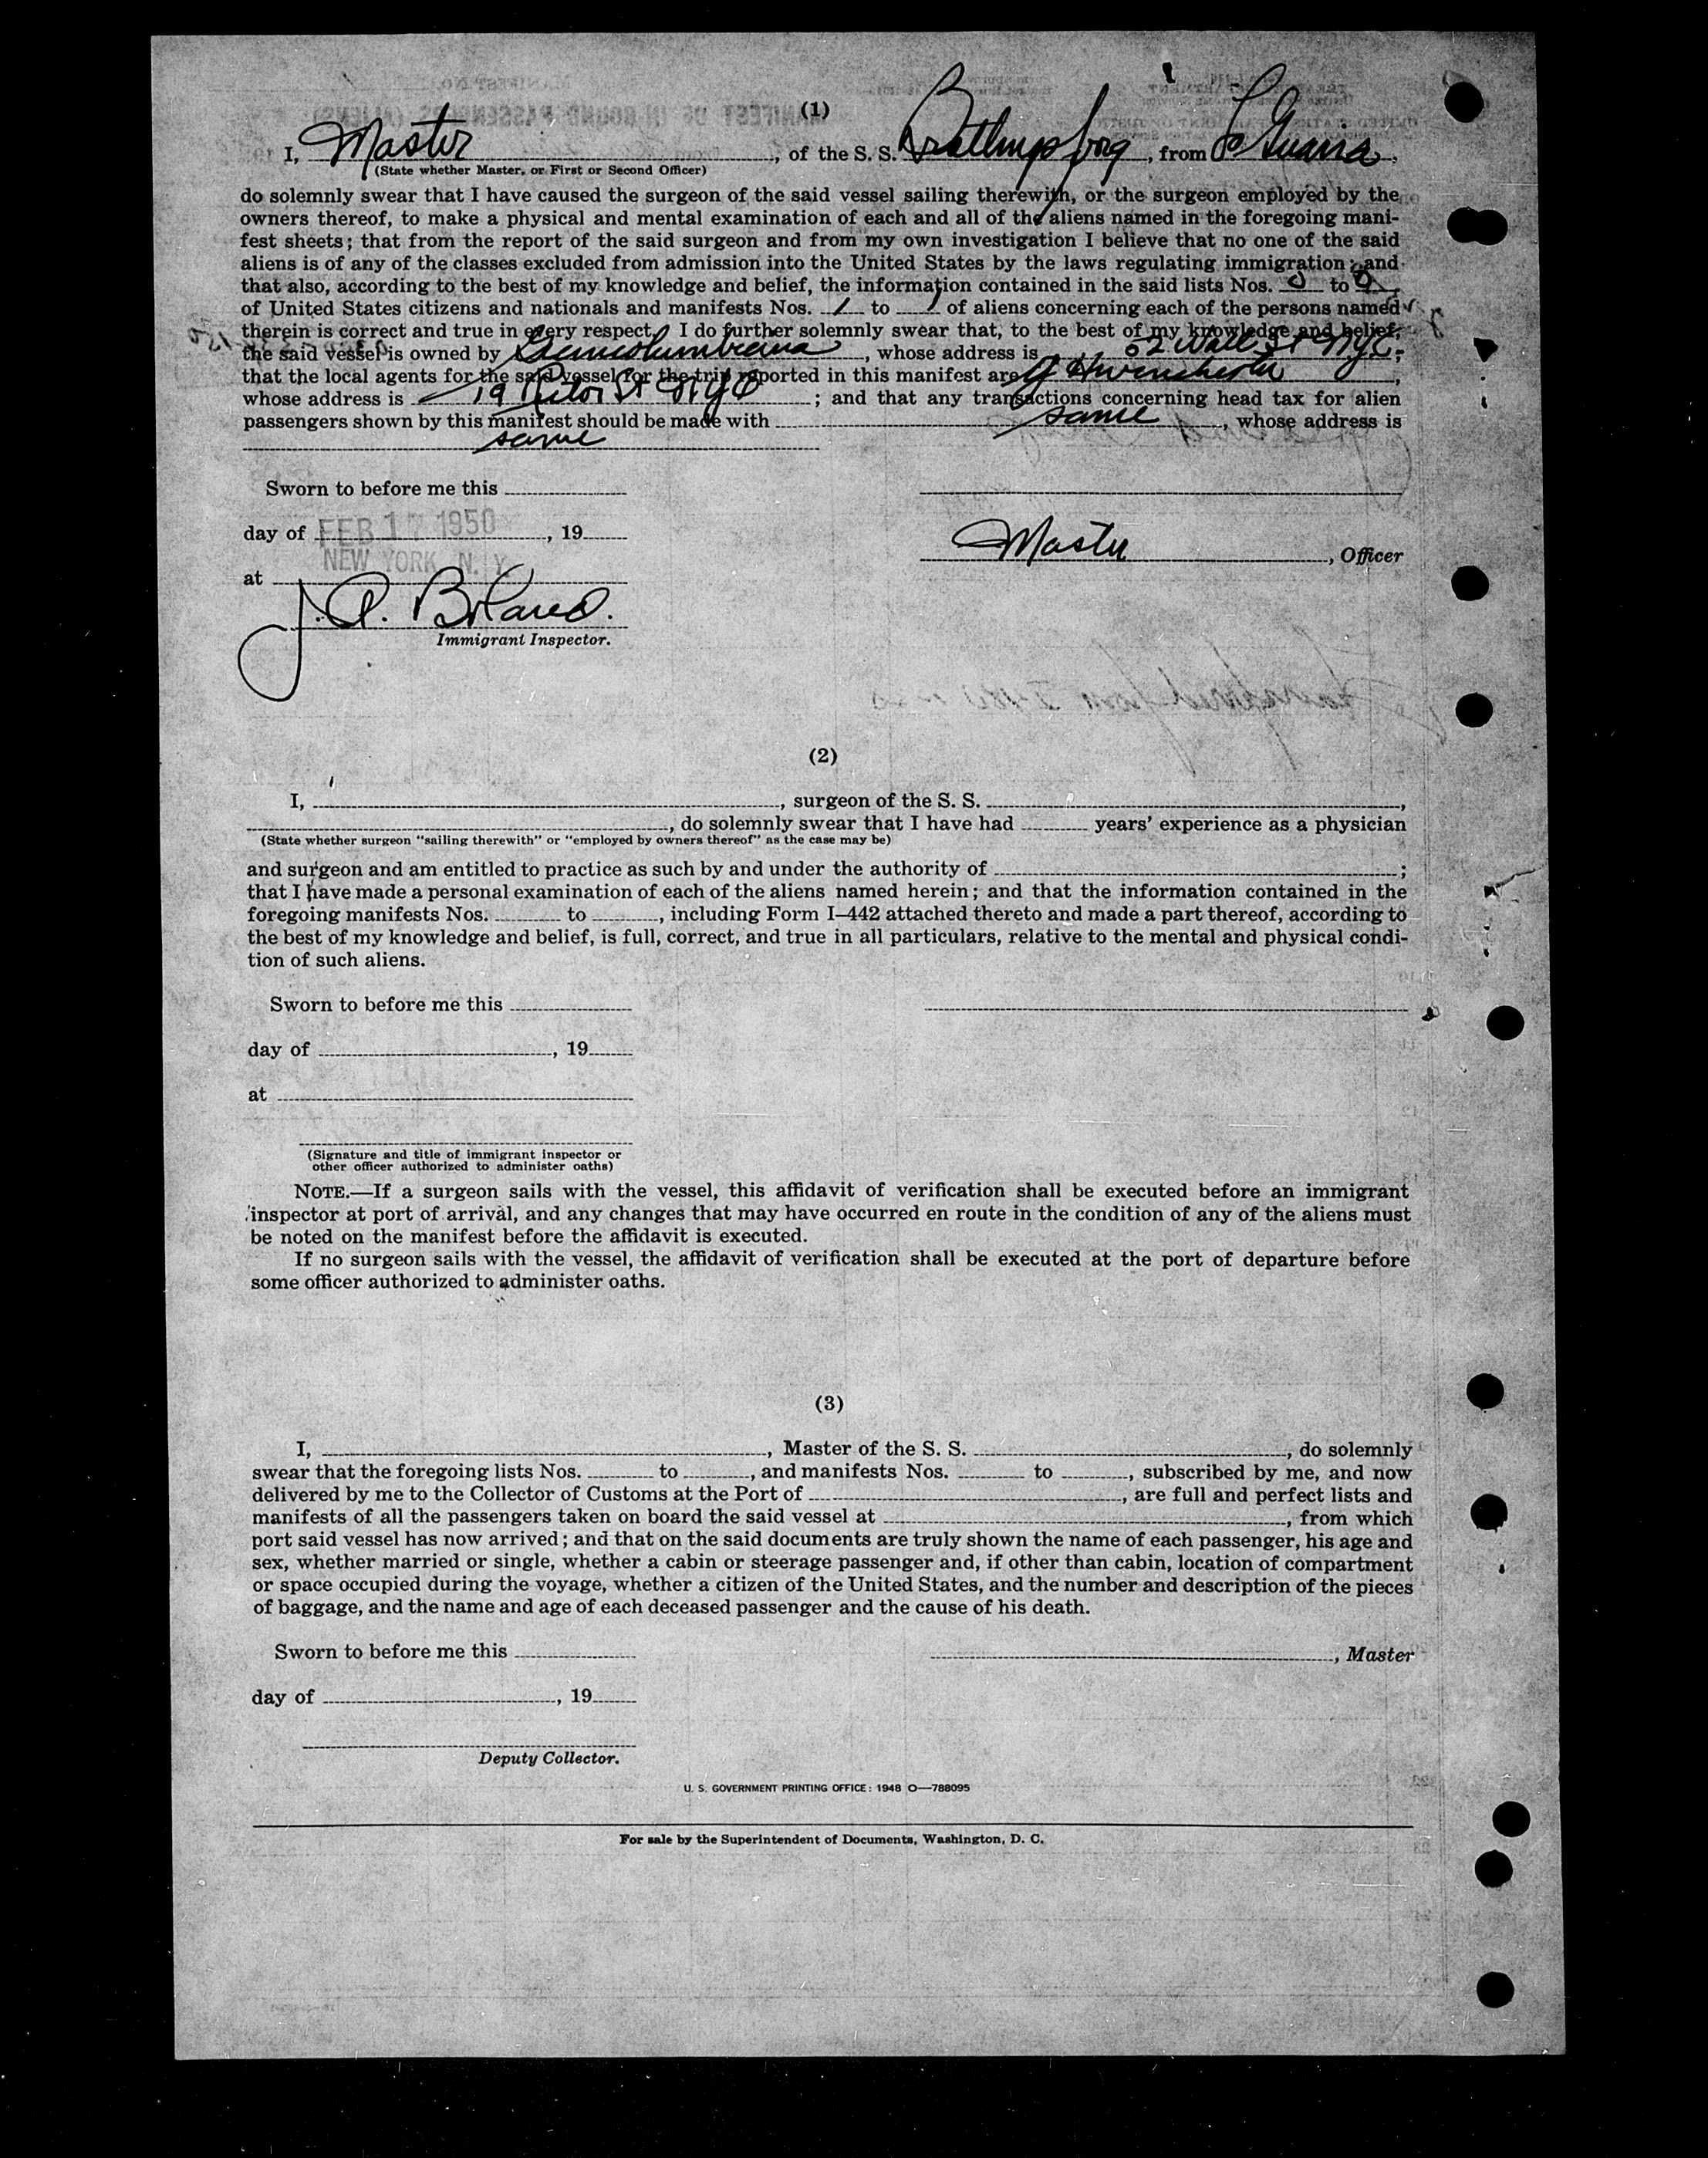 (1)
I, Master, of the S. S. , from La Guaira,
(State whether Master, or First or Second Officer)
do solemnly swear that I have caused the surgeon of the said vessel sailing therewith, or the surgeon employed by the
owners thereof, to make a physical and mental examination of each and all of the aliens named in the foregoing mani-
fest sheets; that from the report of the said surgeon and from my own investigation I believe that no one of the said
aliens is of any of the classes excluded from admission into the United States by the laws regulating immigration; and
that also, according to the best of my knowledge and belief, the information contained in the said lists Nos. 0 to 0
of United States citizens and nationals and manifests Nos. 1 to 1 of aliens concerning each of the persons named
therein is correct and true in every respect. I do further solemnly swear that, to the best of my knowledge and belief,
the said vessel is owned by , whose address is 52 Wall St NYC;
that the local agents for the said vessel for the trip reported in this manifest are ,
whose address is 19 Rector St NYC; and that any transactions concerning head tax for alien
passengers shown by this manifest should be made with same, whose address is
same
Sworn to before me this
day of FEB 17 1950, 19
NEW YORK, N. Y.
Master, Officer
at
J. A. Boland.
Immigrant Inspector.
(2)
I, , surgeon of the S. S. ,
, do solemnly swear that I have had years' experience as a physician
(State whether surgeon "sailing therewith" or "employed by owners thereof" as the case may be)
and surgeon and am entitled to practice as such by and under the authority of ;
that I have made a personal examination of each of the aliens named herein; and that the information contained in the
foregoing manifests Nos. to , including Form I-442 attached thereto and made a part thereof, according to
the best of my knowledge and belief, is full, correct, and true in all particulars, relative to the mental and physical condi-
tion of such aliens.
Sworn to before me this
day of , 19
at
(Signature and title of immigrant inspector or
other officer authorized to administer oaths)
NOTE.—If a surgeon sails with the vessel, this affidavit of verification shall be executed before an immigrant
inspector at port of arrival, and any changes that may have occurred en route in the condition of any of the aliens must
be noted on the manifest before the affidavit is executed.
If no surgeon sails with the vessel, the affidavit of verification shall be executed at the port of departure before
some officer authorized to administer oaths.
(3)
I, , Master of the S. S. , do solemnly
swear that the foregoing lists Nos. to , and manifests Nos. to , subscribed by me, and now
delivered by me to the Collector of Customs at the Port of , are full and perfect lists and
manifests of all the passengers taken on board the said vessel at , from which
port said vessel has now arrived; and that on the said documents are truly shown the name of each passenger, his age and
sex, whether married or single, whether a cabin or steerage passenger and, if other than cabin, location of compartment
or space occupied during the voyage, whether a citizen of the United States, and the number and description of the pieces
of baggage, and the name and age of each deceased passenger and the cause of his death.
Sworn to before me this
, Master
day of , 19
Deputy Collector.
U. S. GOVERNMENT PRINTING OFFICE: 1948 O—788095
For sale by the Superintendent of Documents, Washington, D. C.